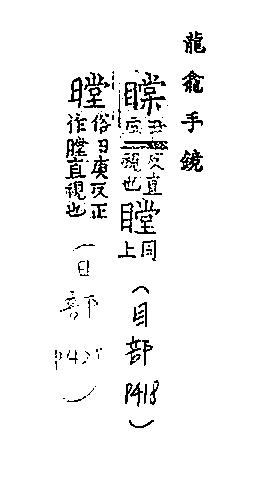 龍龕手鏡
瞠丑庚反直視也瞠同上
（目部P418）
瞠俗丑庚反正作瞠直視也
（日部